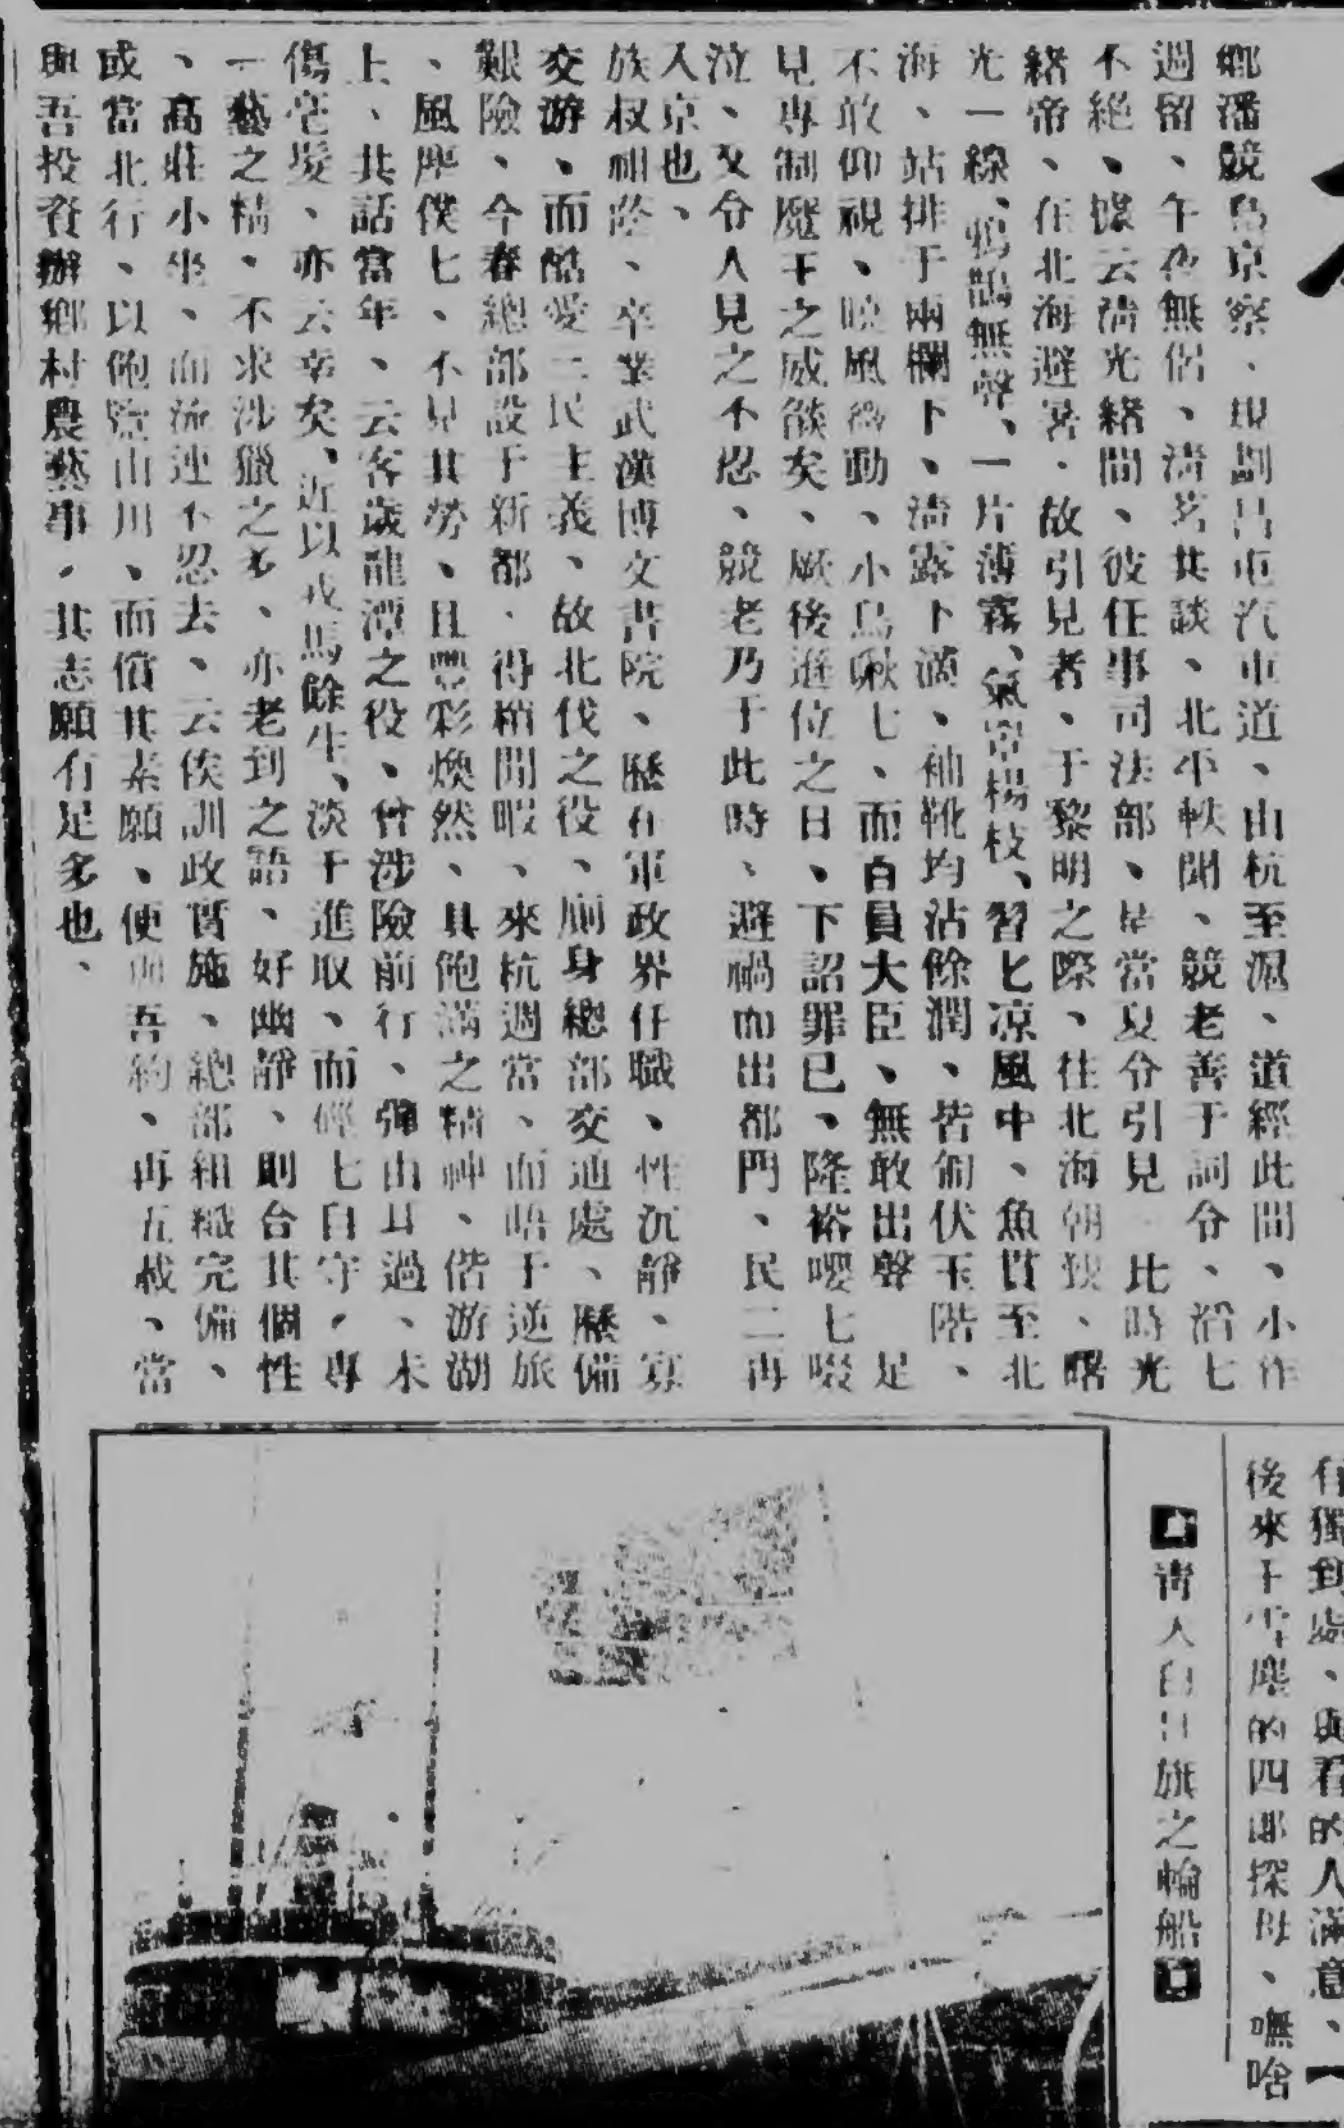 鄉潘競爲京察、現劃呂車汽車道、由杭至滬、道經此間、小作
週留、午夜無侶、淸茗共談、北平軼聞、競老善于詞令、滔七
不絕、據云淸光緖間、彼任事司法部、是當夏令引見、比時光
緖帝、在北海避暑、故引見者、于黎明之際、往北海朝 、曙
光一線、鴉鵲無聲、一片薄霧、氣 楊枝、習七凉風中、魚貫至北
海、站排于兩欄下、淸露下滴、袖靴均沾餘潤、皆俯伏玉階、
不敢仰視、曉風微動、小鳥啾七、而百員大臣、無敢出聲 足
見專制魔王之威燄矣、厥後遜位之日、下詔罪已、隆裕嚶七啜
泣、又令人見之不忍、競老乃于此時、避禍而出都門、民二再
入京也、
族叔祖蔭、卒業武漢博文書院、歷在軍政界任職、性沉靜、寡
交游、而酷愛三民主義、故北伐之役、廁身總部交通處、歷備
艱險、今春總部設于新都、得稍閒暇、來杭週當、而晤于逆旅
、風塵僕七、不見其勞、且豐彩煥然、具飽滿之精神、偕游湖
上、共話當年、云客歲龍潭之役、曾涉險前行、彈由耳過、未
傷毫髮、亦云幸矣、近以戎馬餘生、淡于進取、而硜七自守、專
一藝之精、不求涉獵之多、亦老到之語、好幽靜、則台其個性
、高莊小坐、而流連不忍去、云俟訓政實施、總部組織完備、
或當北行、以飽覽山川、而償其素願、便 吾約、再五載、當
與吾投資辦鄉村農藝事、其志願有足多也、
有獨到處、與看的人滿意、
後來干雪塵的四郞探母、嘸啥
靑天白日旗之輪船